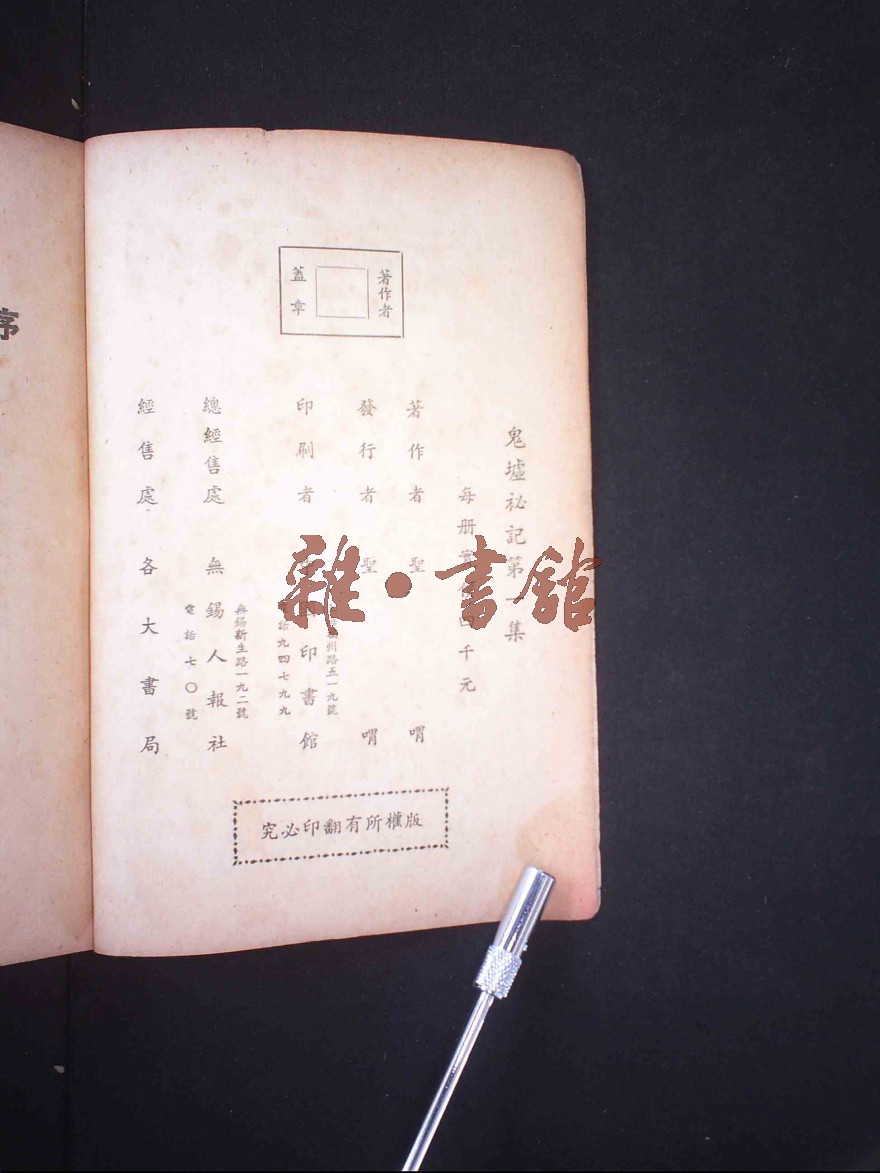 序
著作者
蓋章
鬼墟祕記第一集
每册 四千元
著作者 聖 喟
發行者 聖 喟
印刷者 印書館
州路五一九號
電話九四七九九
總經售處 無錫人報社
無錫新生路一九二號
電話七〇號
經售處 各大書局
版權所有翻印必究
雜·書館